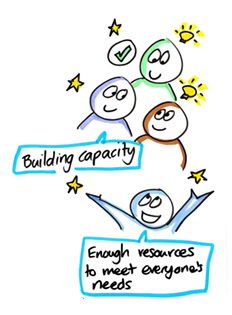 Building capacity
Enough resources
to meet everyone's
needs